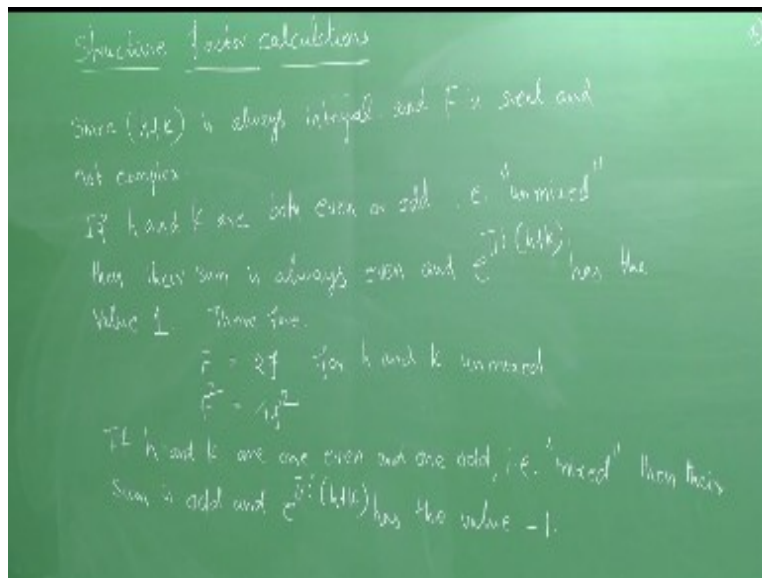 Structure factor calculations
Since (h+k) is always integral and F is real and
not complex.
If h and k are both even or odd i.e. "unmixed"
then their sum is always even and e^πi(h+k) has the
Value 1 Therefore.
F = 2f for h and k unmixed
F² = 4f²
If h and k are one even and one odd, i.e. "mixed" then their
Sum is odd and e^πi(h+k) has the value -1.